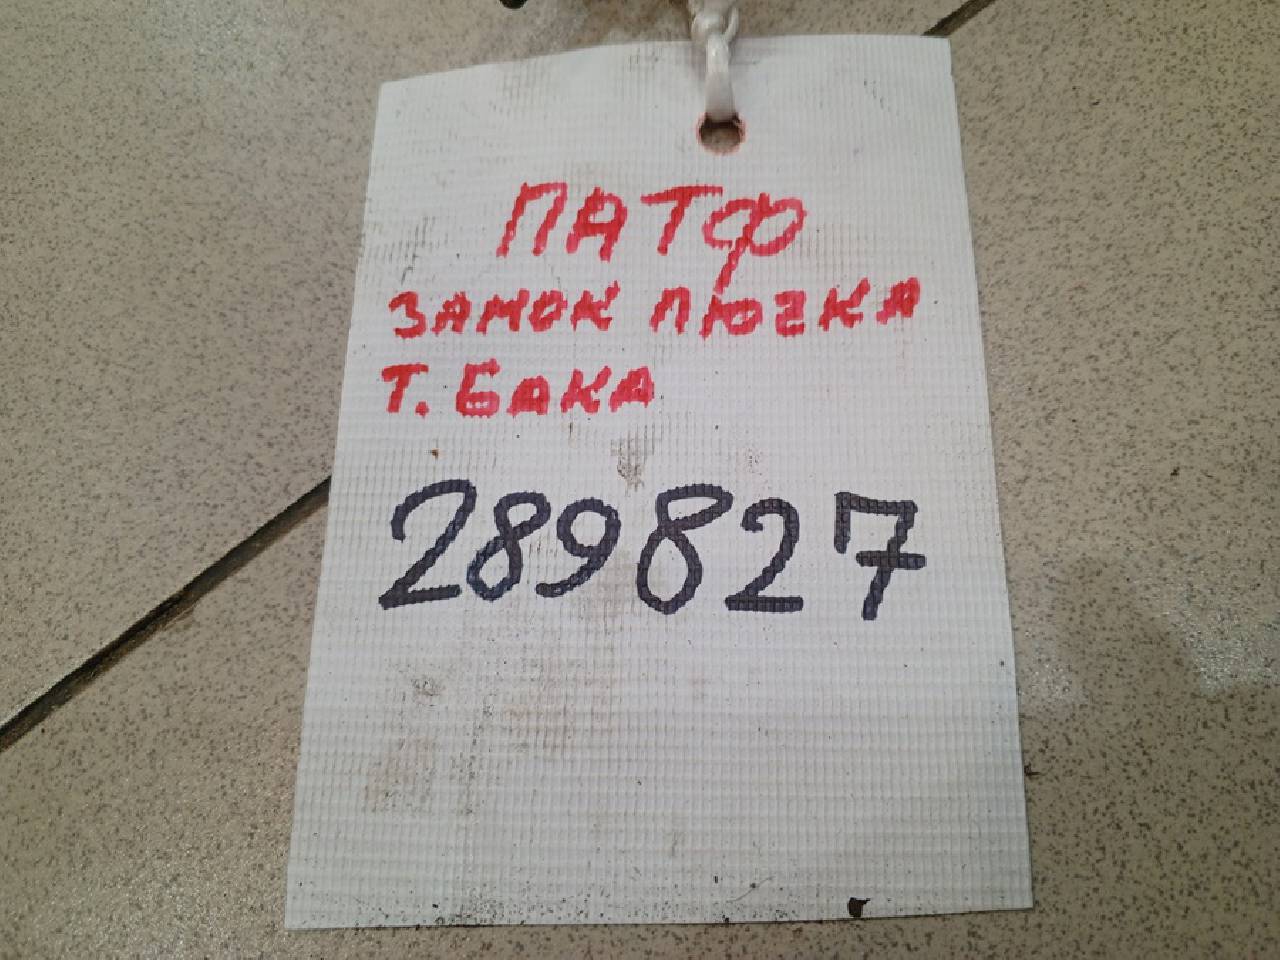 ПАТФ
ЗАМОК ЛЮЧКА
Т. БАКА
289827